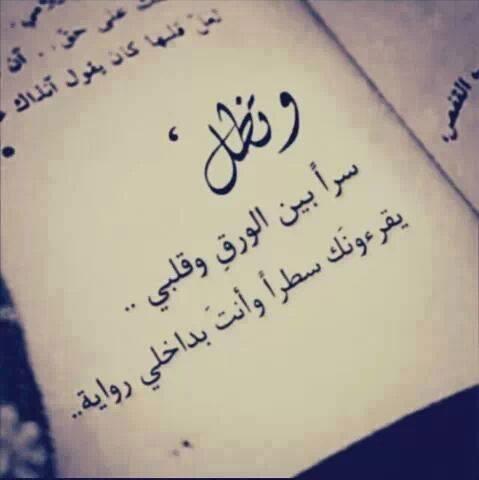 على حق . . آن
لعل قلبها كان يقول آنذاك
القفص،
و تظل ،
سراً بين الورقِ وقلبي ..
يقرءونَك سطراً وأنتَ بداخلي رواية..